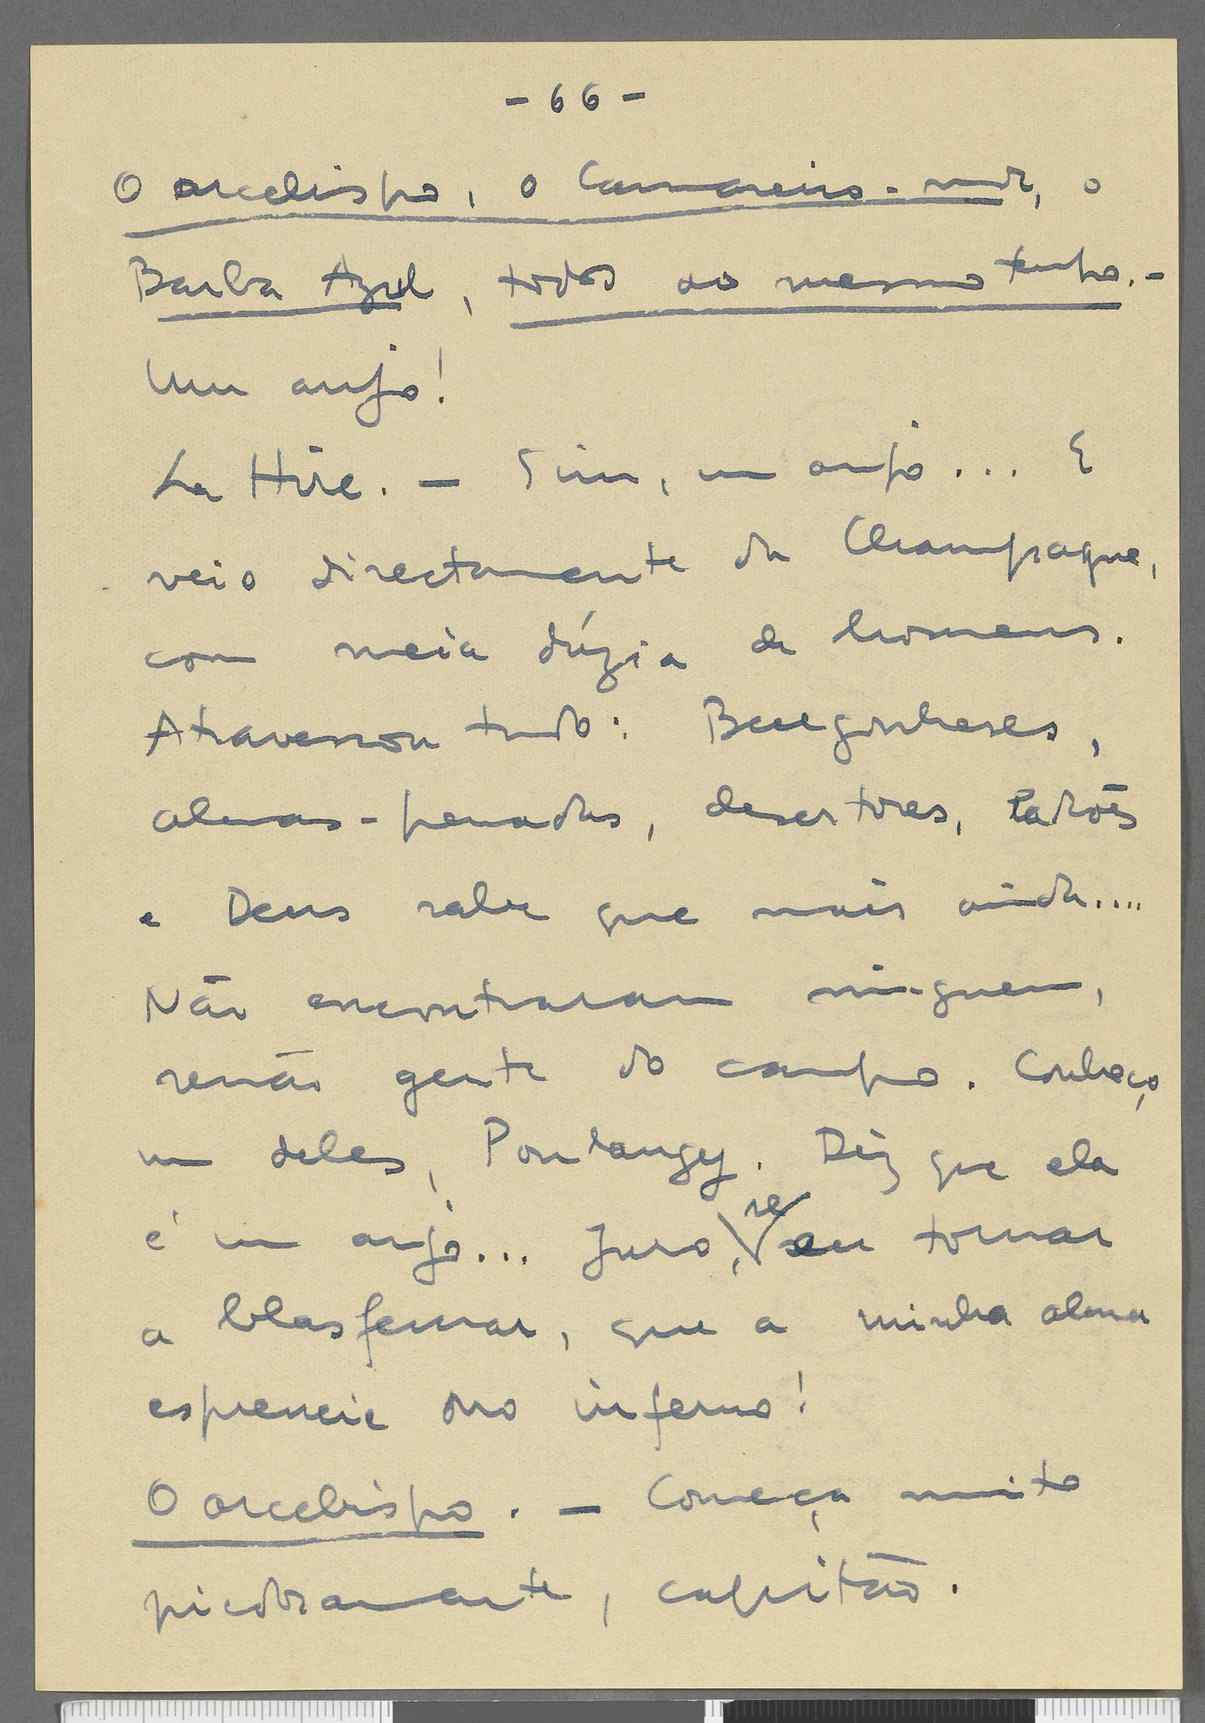 - 66 -
O arcebispo, o Camareiro-mór, o
Barba Azul, todos ao mesmo tempo. -
Um anjo!
La Hire. - Sim, um anjo... E
veio directamente da Champagne,
com meia dúzia de homens.
Atravessou tudo: Burgonheses,
almas-penadas, desertores, ladrões
e Deus sabe que mais ainda....
Não encontraram ninguem,
senão gente do campo. Conheço
um deles, Poulangey. Diz que ela
é um anjo... Juro, se eu tornar
a blasfemar, que a minha alma
esperneie no inferno!
O arcebispo. - Começa muito
piedosamente, capitão.